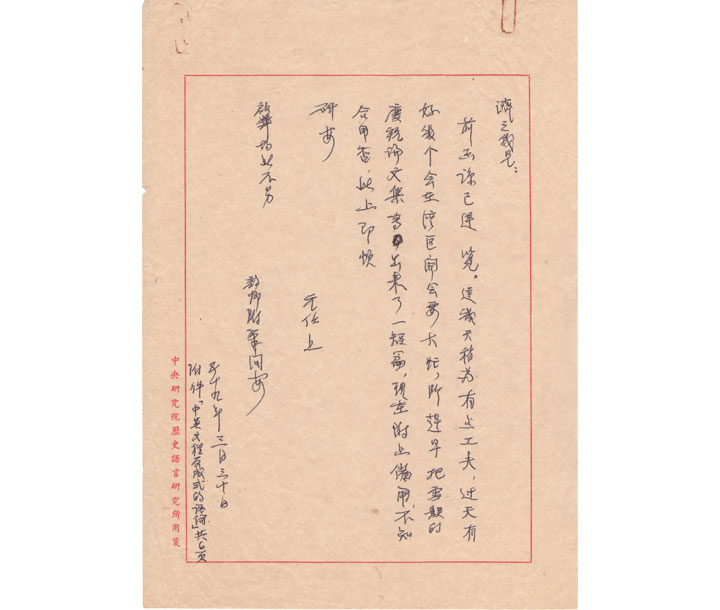 濟之我兄:
前函諒已達覽。這幾天稍為有点工夫,过天有
好幾个会在湾区開会要大忙,所趕早把要賀的
慶祝論文集寫出来了一短篇,現在附上備用,不知
合用否,此上即頌
研安
元任上
啟華均此不另
韵卿附筆问安
五十九年三月三十日
附件「中英文裡反成式的語詞」共6頁
中央研究院歷史語言研究所用箋